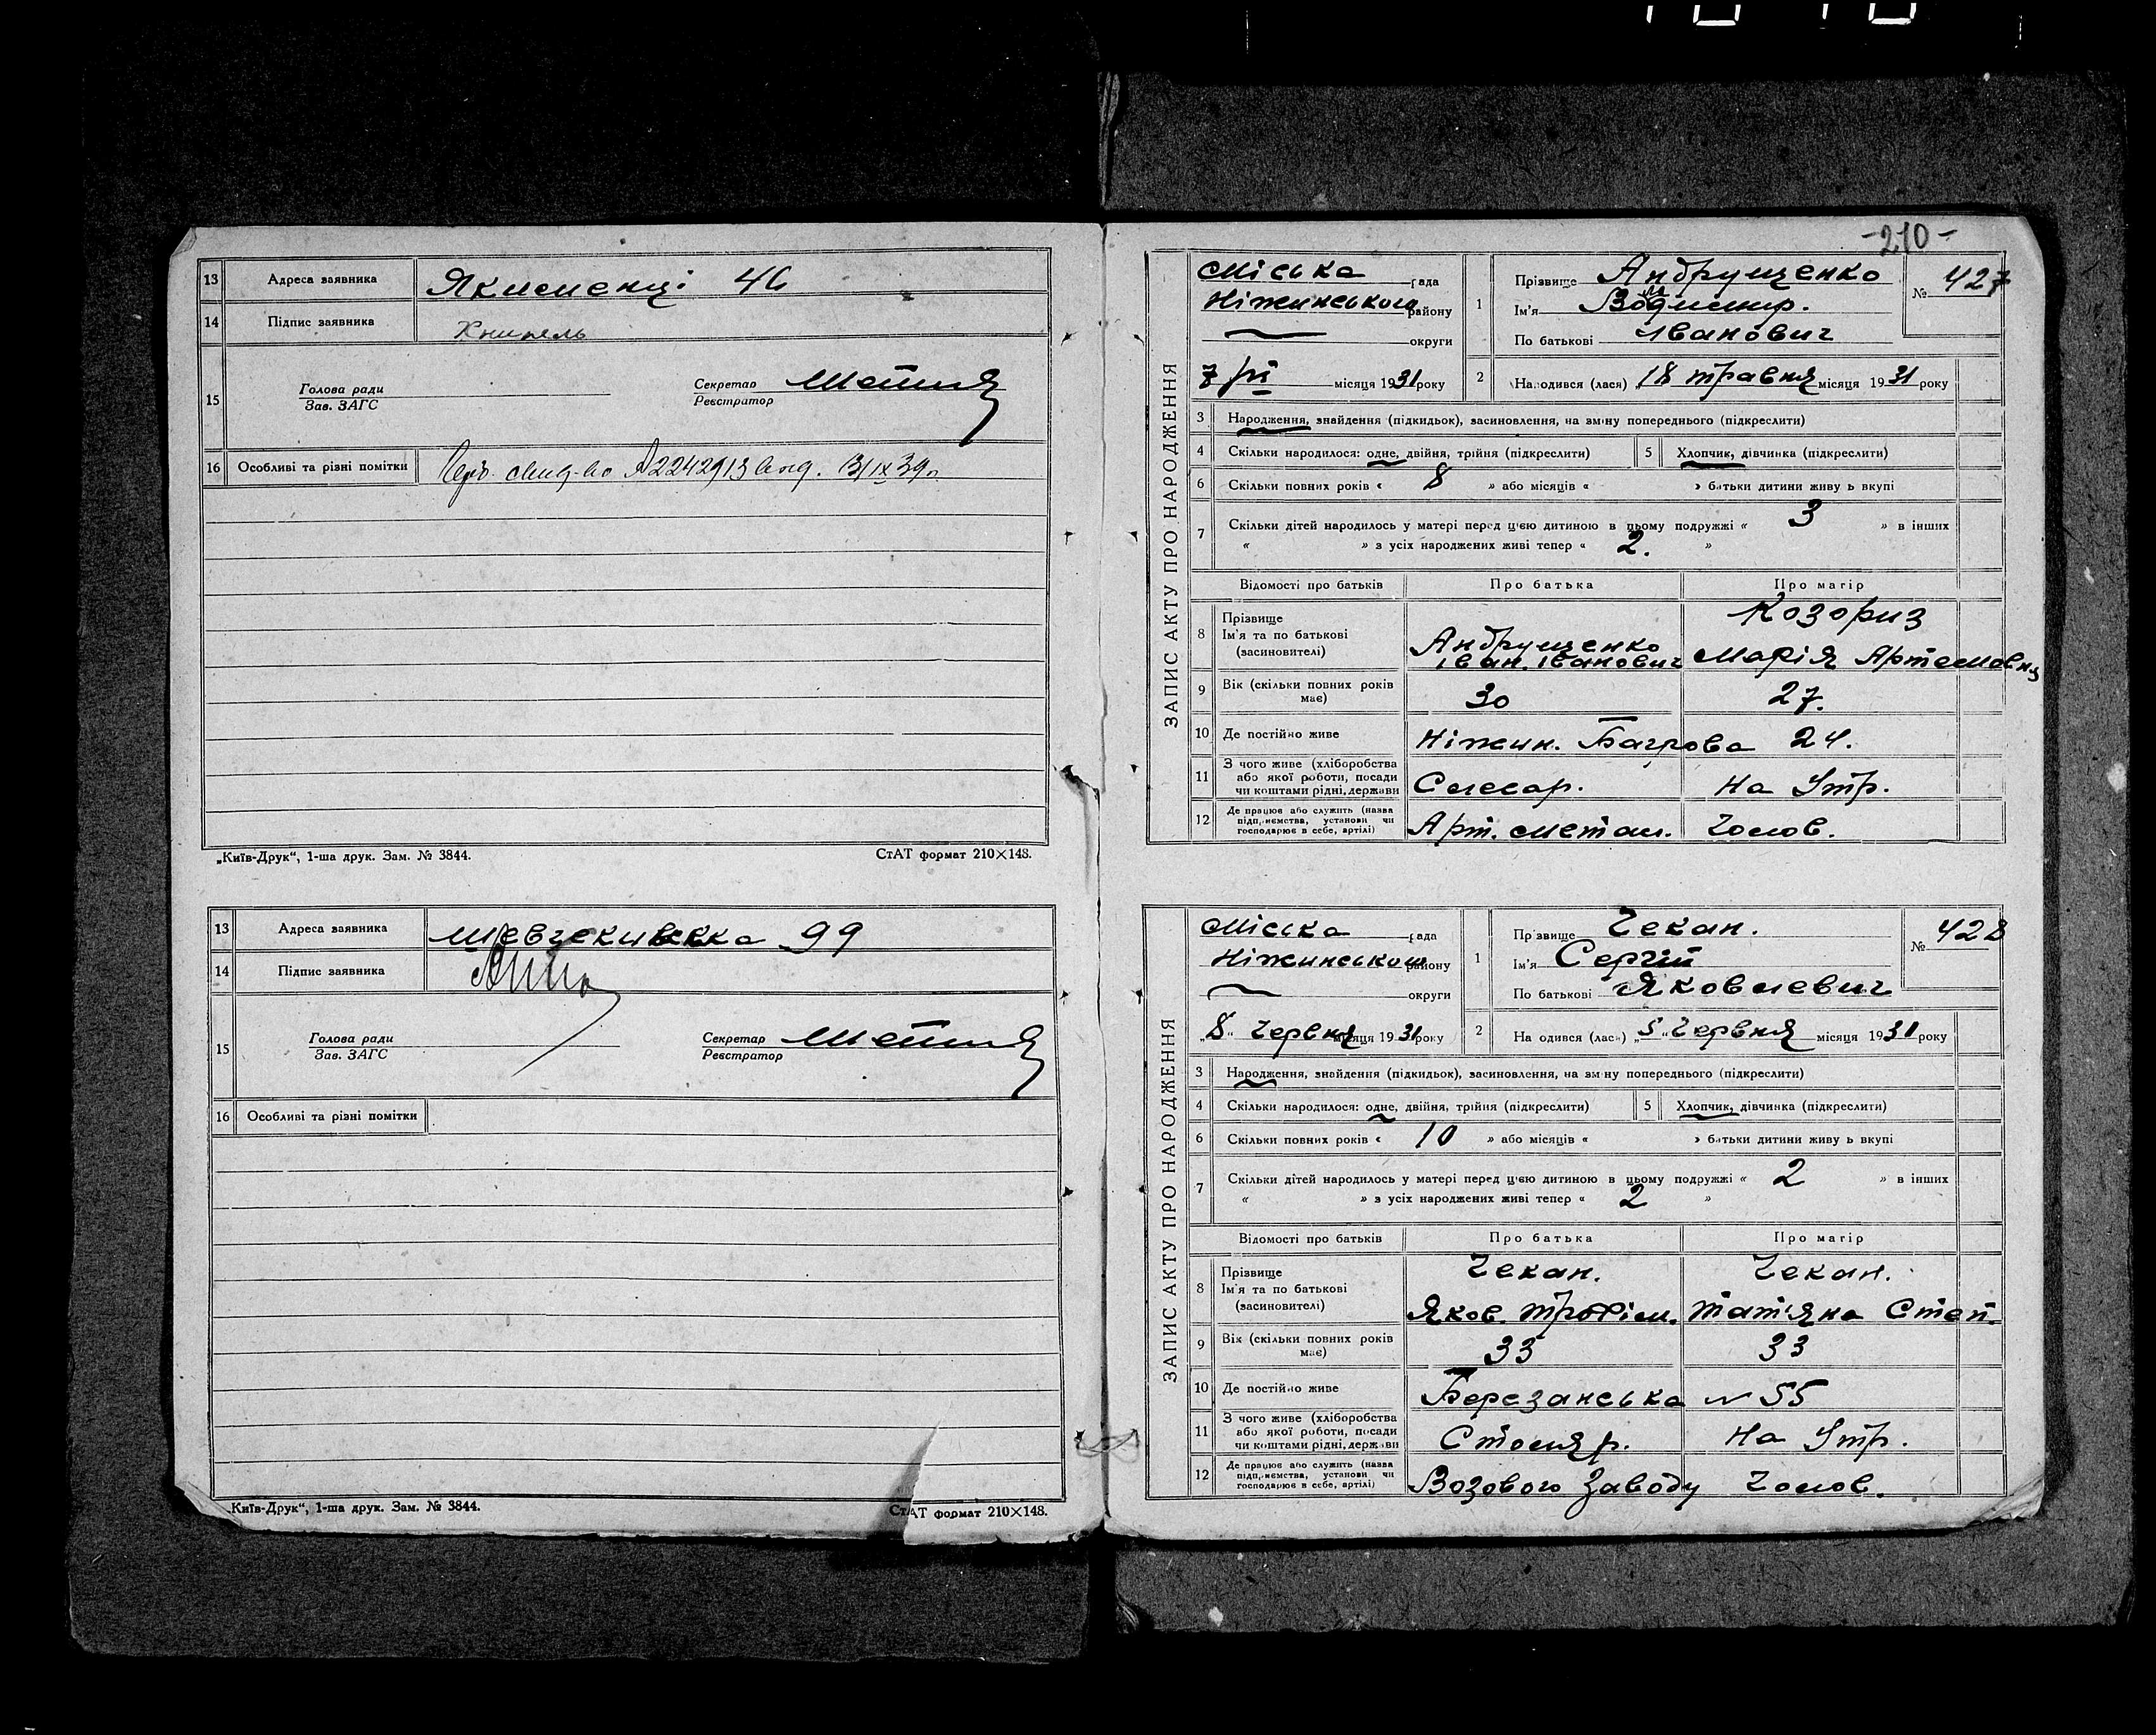 13 Адреса заявника Якименці 46
14 Підпис заявника Книпель
15 Голова ради Секретар
Зав. ЗАГС Реєстратор
16 Особливі та різні помітки
„Київ-Друк“, 1-ша друк. Зам. № 3844. СтАТ формат 210×148.
13 Адреса заявника Шевченківська 99
14 Підпис заявника
15 Голова ради Секретар
Зав. ЗАГС Реєстратор
16 Особливі та різні помітки
„Київ-Друк“, 1-ша друк. Зам. № 3844. СтАТ формат 210×148.
-210-
ЗАПИС АКТУ ПРО НАРОДЖЕННЯ
Міська рада 1 Прізвище Андрущенко № 427
Ніжинського району Ім'я Володимир.
округи По батькові Іванович
7/VI місяця 1931 року 2 Народився (лася) „18 травня місяця 1931 року
3 Народження, знайдення (підкидьок), засиновлення, на зміну попереднього (підкреслити)
4 Скільки народилося: одне, двійня, трійня (підкреслити) 5 Хлопчик, дівчинка (підкреслити)
6 Скільки повних років « 8 » або місяців « » батьки дитини живуть вкупі
7 Скільки дітей народилось у матері перед цією дитиною в цьому подружжі « 3 » в інших
« » з усіх народжених живі тепер « 2. »
Відомості про батьків Про батька Про матір
8 Прізвище Ім'я та по батькові (засиновителі) Андрущенко Іван. Іванович Козориз Марія Артемовна
9 Вік (скільки повних років має) 30 27.
10 Де постійно живе Ніжин. Багрова 24.
11 З чого живе (хліборобства або якої роботи, посади чи коштами рідні, держави Слесар. На Утр.
12 Де працює або служить (назва підприємства, установи чи господарює в себе, артілі) Арт. метал. Чолов.
ЗАПИС АКТУ ПРО НАРОДЖЕННЯ
Міська рада 1 Прізвище Чекан. № 428
Ніжинського району Ім'я Сергій
округи По батькові Яковлевич
„8“ Червня місяця 1931 року 2 Народився (лася) „5“ Червня місяця 1931 року
3 Народження, знайдення (підкидьок), засиновлення, на зміну попереднього (підкреслити)
4 Скільки народилося: одне, двійня, трійня (підкреслити) 5 Хлопчик, дівчинка (підкреслити)
6 Скільки повних років « 10 » або місяців « » батьки дитини живуть вкупі
7 Скільки дітей народилось у матері перед цією дитиною в цьому подружжі « 2 » в інших
« » з усіх народжених живі тепер « 2 »
Відомості про батьків Про батька Про матір
8 Прізвище Ім'я та по батькові (засиновителі) Чекан. Яков. Трофім. Чекан. Татіяна Степ.
9 Вік (скільки повних років має) 33 33
10 Де постійно живе Березанська № 55
11 З чого живе (хліборобства або якої роботи, посади чи коштами рідні, держави Столяр. На Утр.
12 Де працює або служить (назва підприємства, установи чи господарює в себе, артілі) Возового Заводу Чолов.